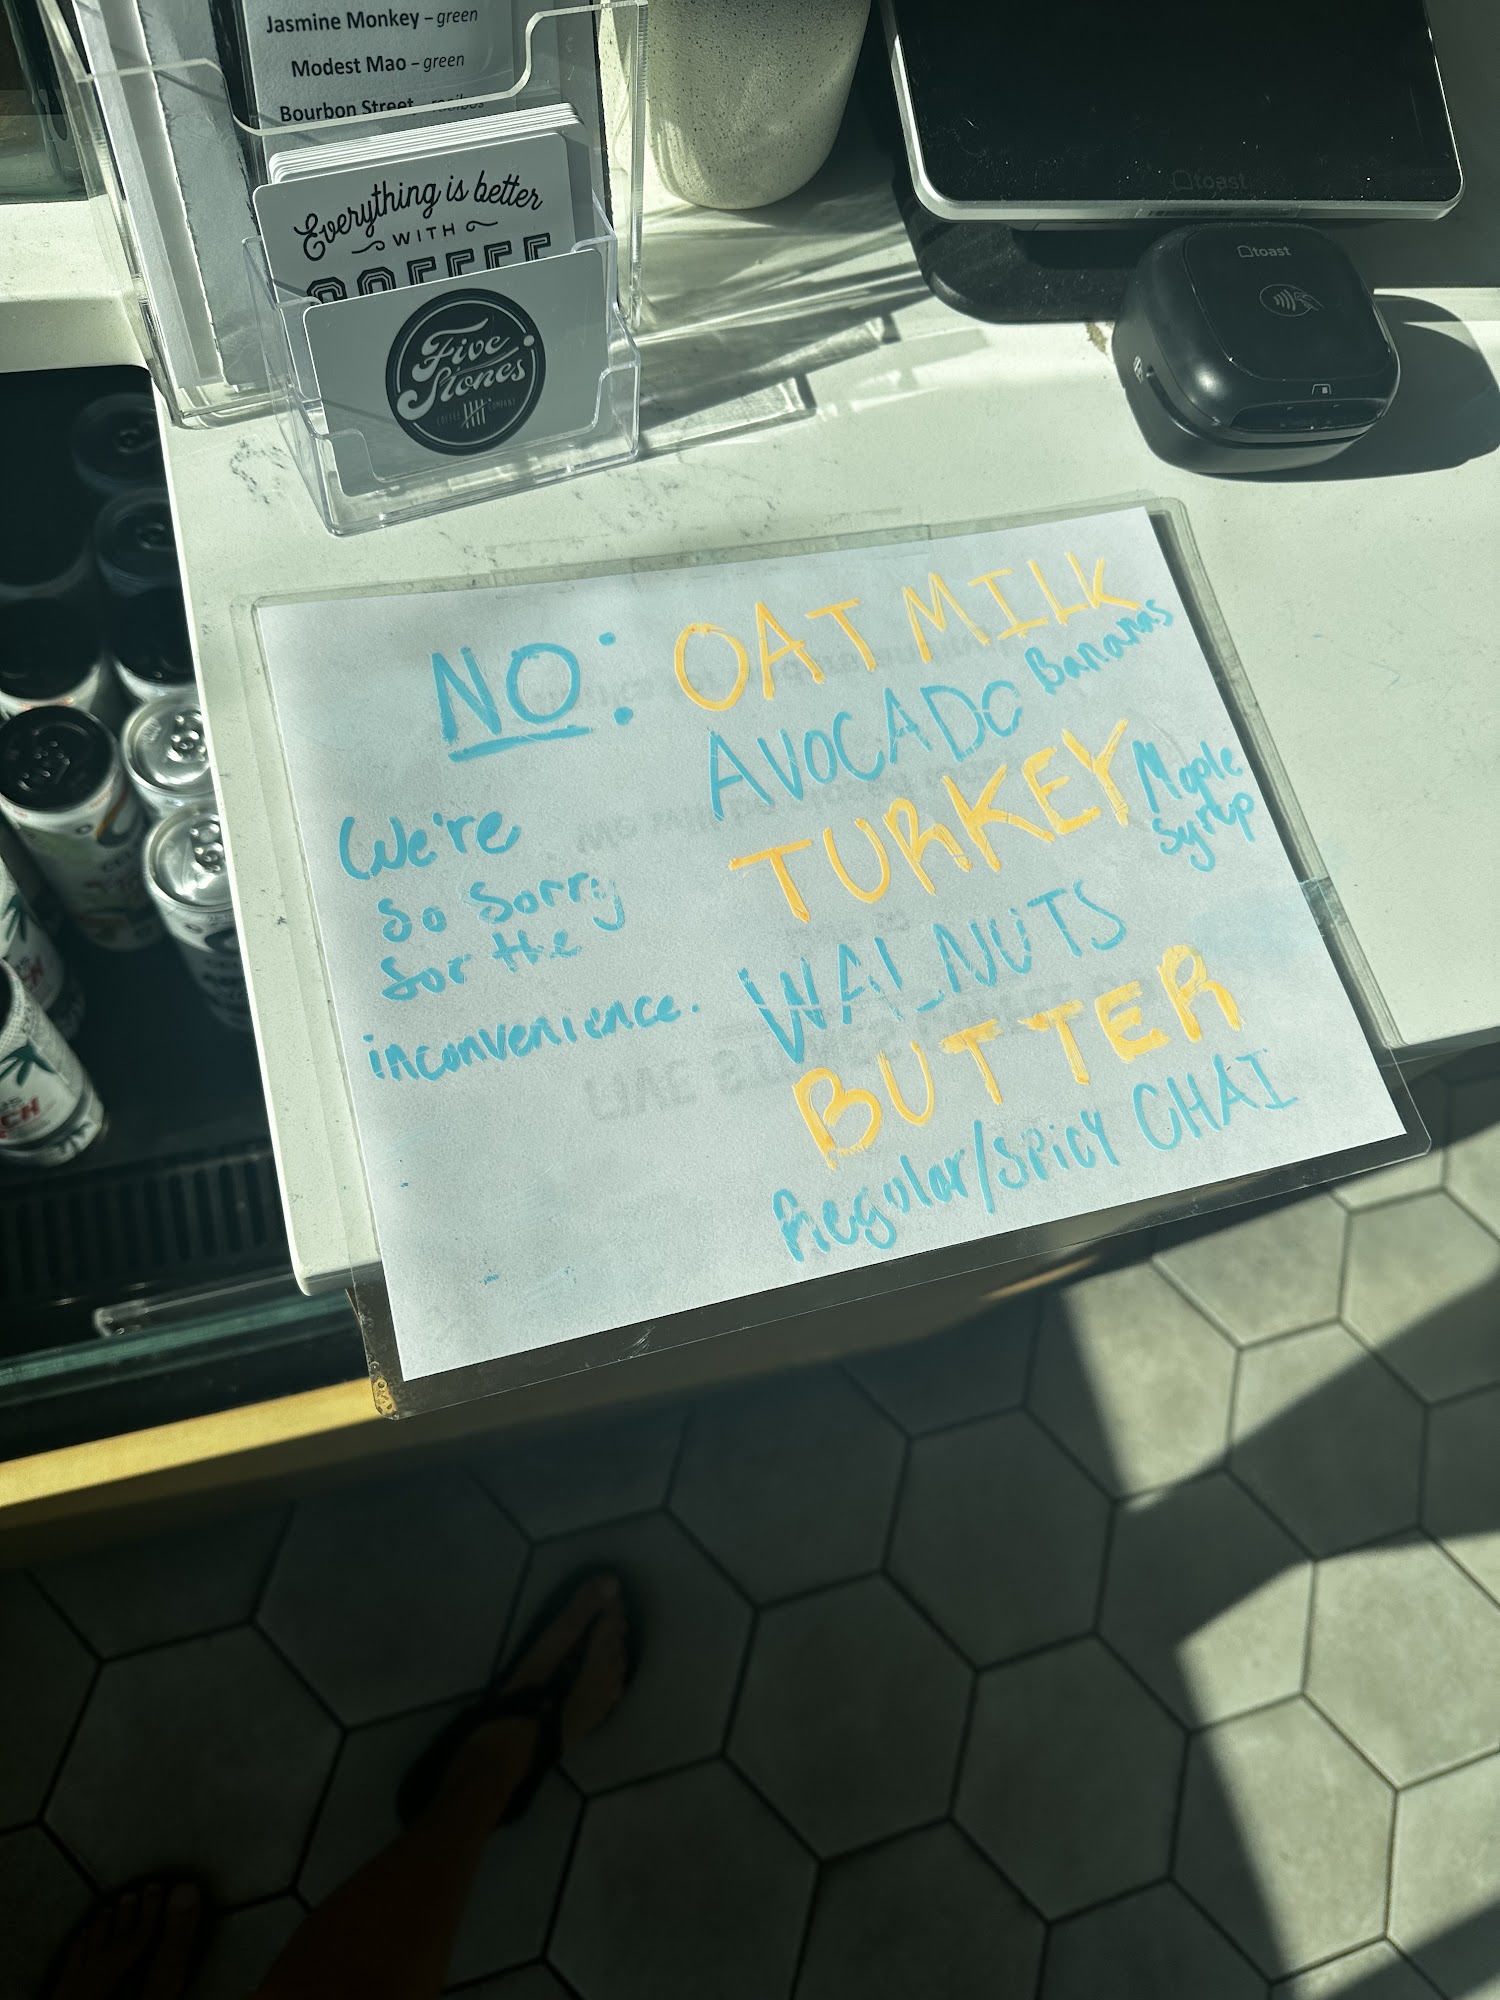 Jasmine Monkey – green
Modest Mao – green
Bourbon Street – rooibos
Everything is better
WITH
COFFEE
Five
Stones
COFFEE COMPANY
toast
toast
NO:
We're
so sorry
for the
inconvenience.
OAT MILK
Bananas
AVOCADO
TURKEY
Maple
Syrup
WALNUTS
BUTTER
Regular/Spicy CHAI